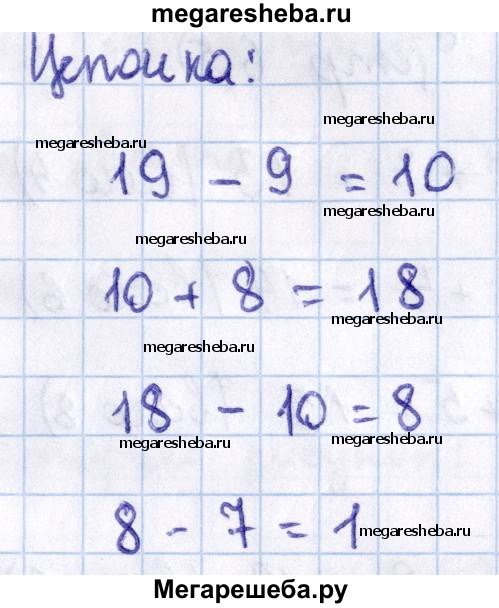 megaresheba.ru
Цепочка:
megaresheba.ru
megaresheba.ru
19 - 9 = 10
megaresheba.ru
megaresheba.ru
10 + 8 = 18
megaresheba.ru
megaresheba.ru
18 - 10 = 8
megaresheba.ru
megaresheba.ru
8 - 7 = 1
megaresheba.ru
Мегарешеба.ру